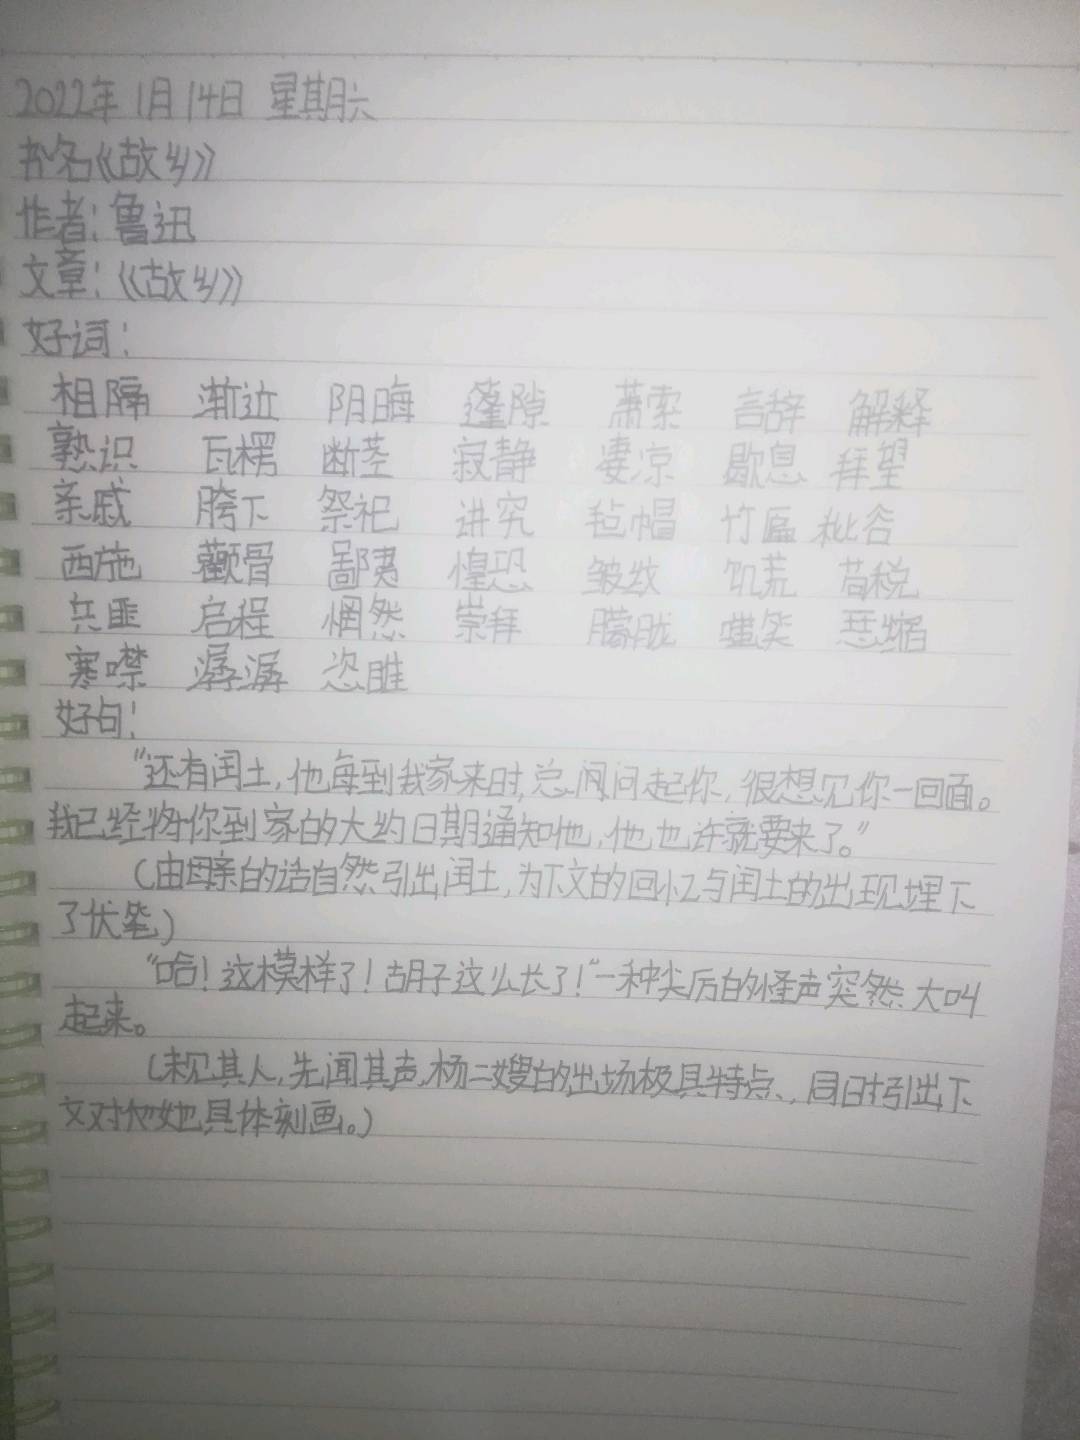 2022年1月14日 星期六
书名《故乡》
作者：鲁迅
文章：《故乡》
好词：
相隔 渐近 阴晦 蓬隙 萧索 言辞 解释
熟识 瓦楞 断茎 寂静 凄凉 歇息 拜望
亲戚 胯下 祭祀 讲究 毡帽 竹匾 秕谷
西施 颧骨 鄙夷 惶恐 皱纹 饥荒 苛税
兵匪 启程 惘然 崇拜 朦胧 嗤笑 恐缩
寒噤 潺潺 恣睢
好句：
“还有闰土，他每到我家来时，总闻问起你，很想见你一回面。
我已经将你到家的大约日期通知他，他也许就要来了。”
（由母亲的话自然引出闰土，为下文的回忆与闰土的出现埋下
了伏笔）
“哈！这模样了！胡子这么长了！”一种尖厉的怪声突然大叫
起来。
（未见其人，先闻其声，杨二嫂的出场极具特点，同时引出下
文对她具体刻画。）